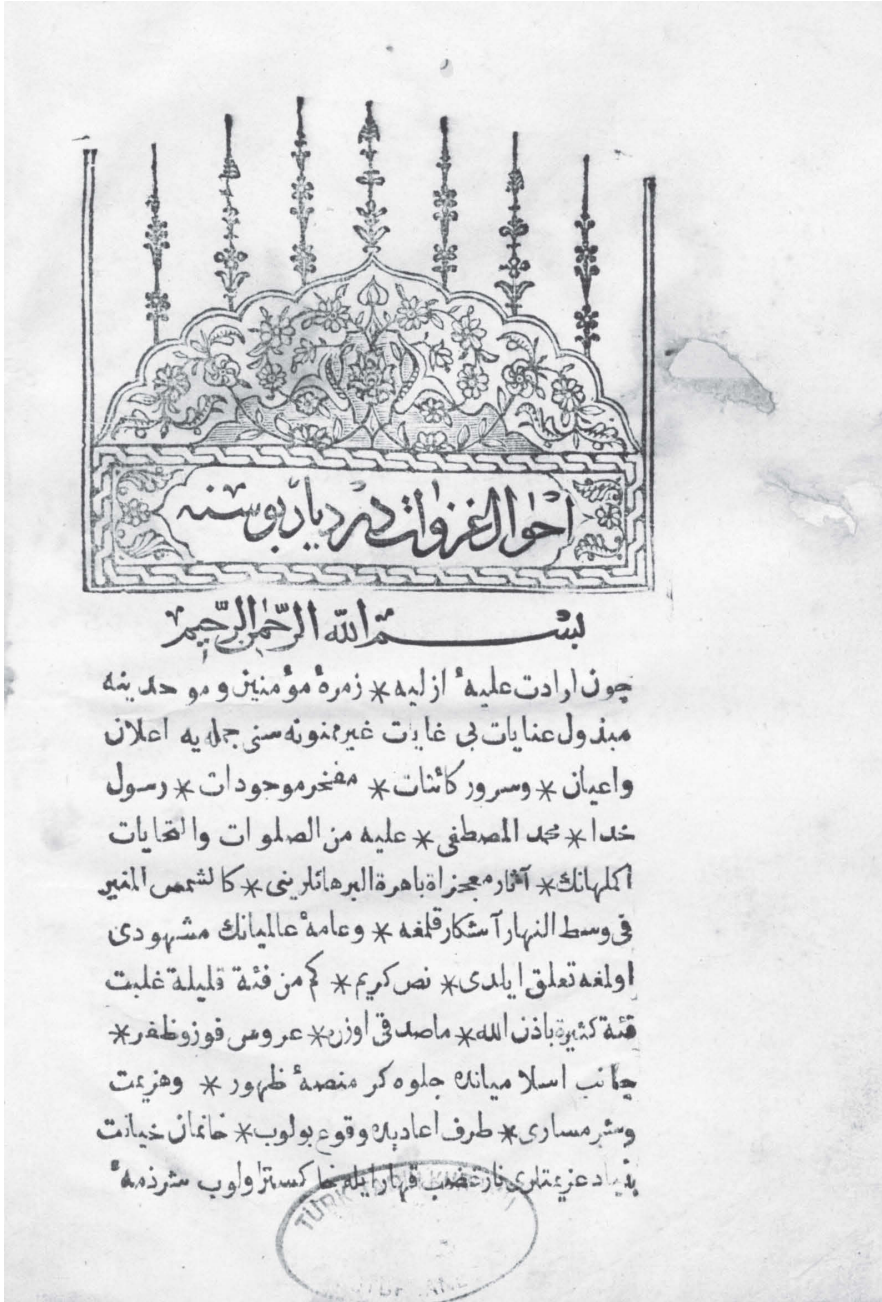 احوال غزوات در ديار بوسنه
بسم الله الرحمن الرحيم
چون ارادت عليهٔ ازليه * زمرهٔ مؤمنين و موحدينه
مبذول عنايات بی غايات غير ممنونه سنی جمله يه اعلان
واعيان * وسرور كائنات * مفخر موجودات * رسول
خدا * محمد المصطفی * عليه من الصلوات والتحايات
اكملهانك * آثار معجزاة باهرة البرهانلرينی * كالشمس المنير
فی وسط النهار آشكار قلمغه * وعامهٔ عالميانك مشهودی
اولمغه تعلق ايلدی * نص كريم * كم من فئة قليلة غلبت
فئة كثيرة باذن الله * ماصدقی اوزره * عروس فوز وظفر *
جانب اسلاميانده جلوه كر منصهٔ ظهور * وهزيمت
وشرمساری * طرف اعاديده وقوع بولوب * خانمان خيانت
بنياد عزيمتلری نار غضب قهار ايله خاكستر اولوب شرذمهٔ
TÜRK